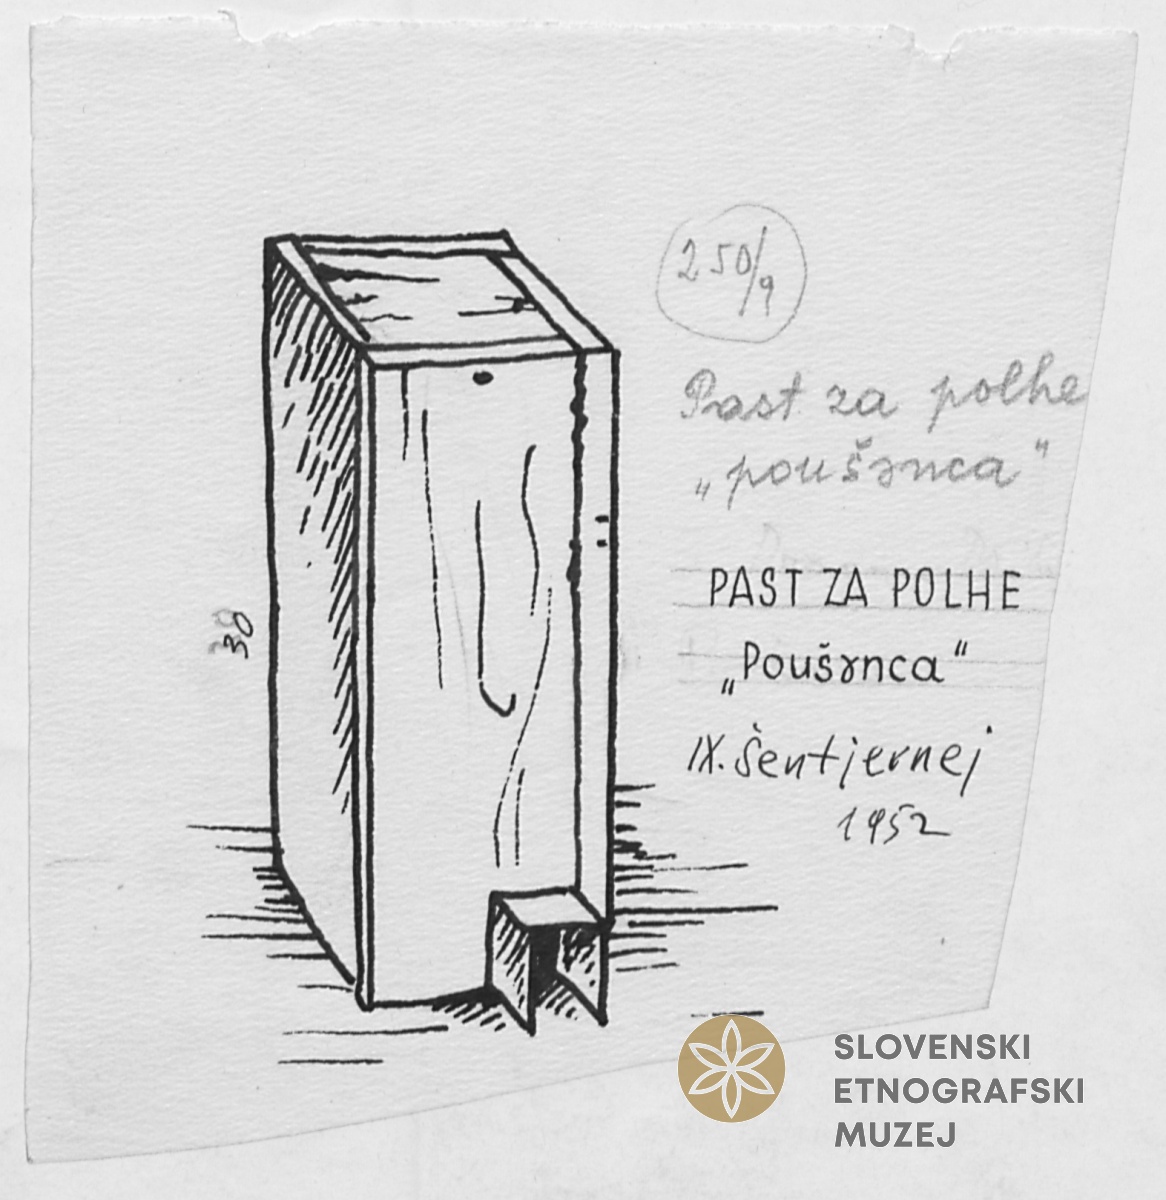 250/9
Past za polhe
„poušǝnca"
PAST ZA POLHE
„Poušǝnca"
30
IX. Šentjernej
1952
SLOVENSKI
ETNOGRAFSKI
MUZEJ